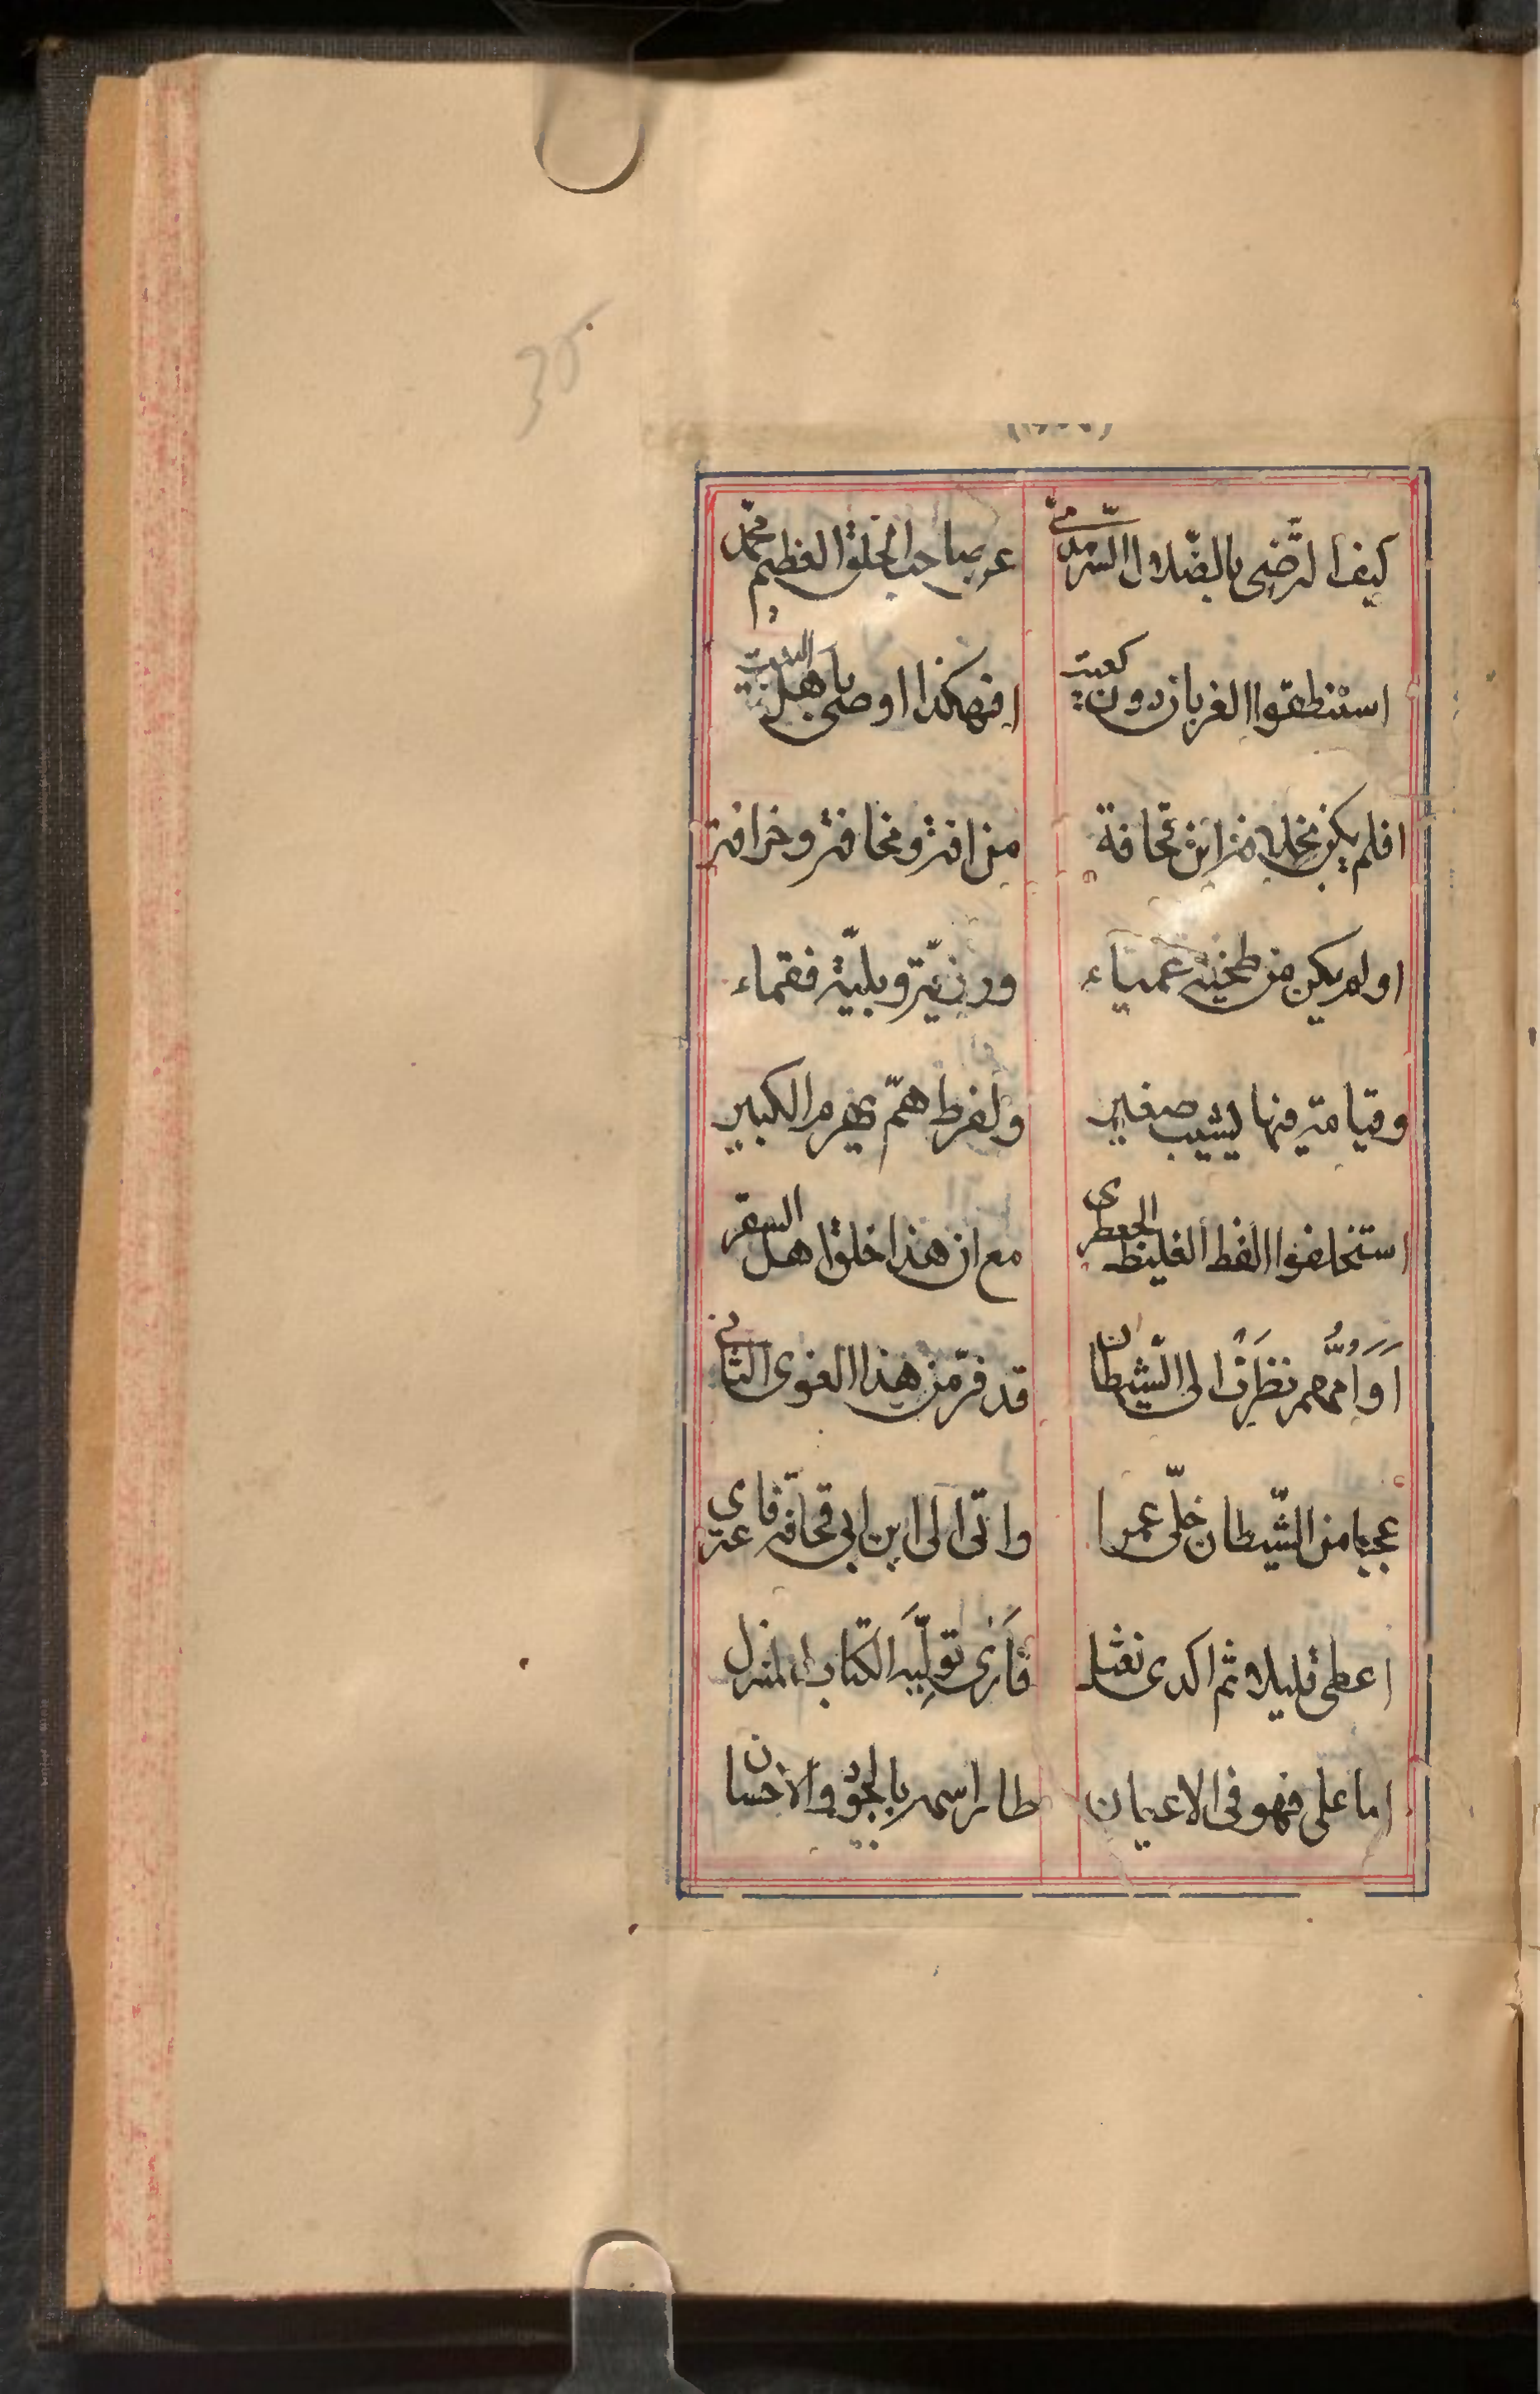 كيف الرّضى بالضّلال السّرمديّ عن صاحب الخلق العظيم محمّد
استنطقوا الغربان دون كعيت افهكذا اوصى باهل البيت
افلم يكن بخلا من ابن قحافة من افة ومخافة وخرافة
اولم يكن من طخية عمياء ورزيّة وبليّة فقماء
وقيامة فيها يشيب صغير ولفرط همّ يهرم الكبير
استخلفوا الفظ الغليظ الجعظرى مع ان هذا خلق اهل السقر
اَوَاُمُّهم نظرت الى الشّيطان قد فرّ من هذا الغوى الثاني
عجبا من الشّيطان خلّى عمرا واتى الى ابن ابى قحافة
اعطى قليلا ثم اكدى نعثل فارى توليه الكتاب المنزل
اما على فهو فى الاعيان طاير اسمه بالجود والاحسان